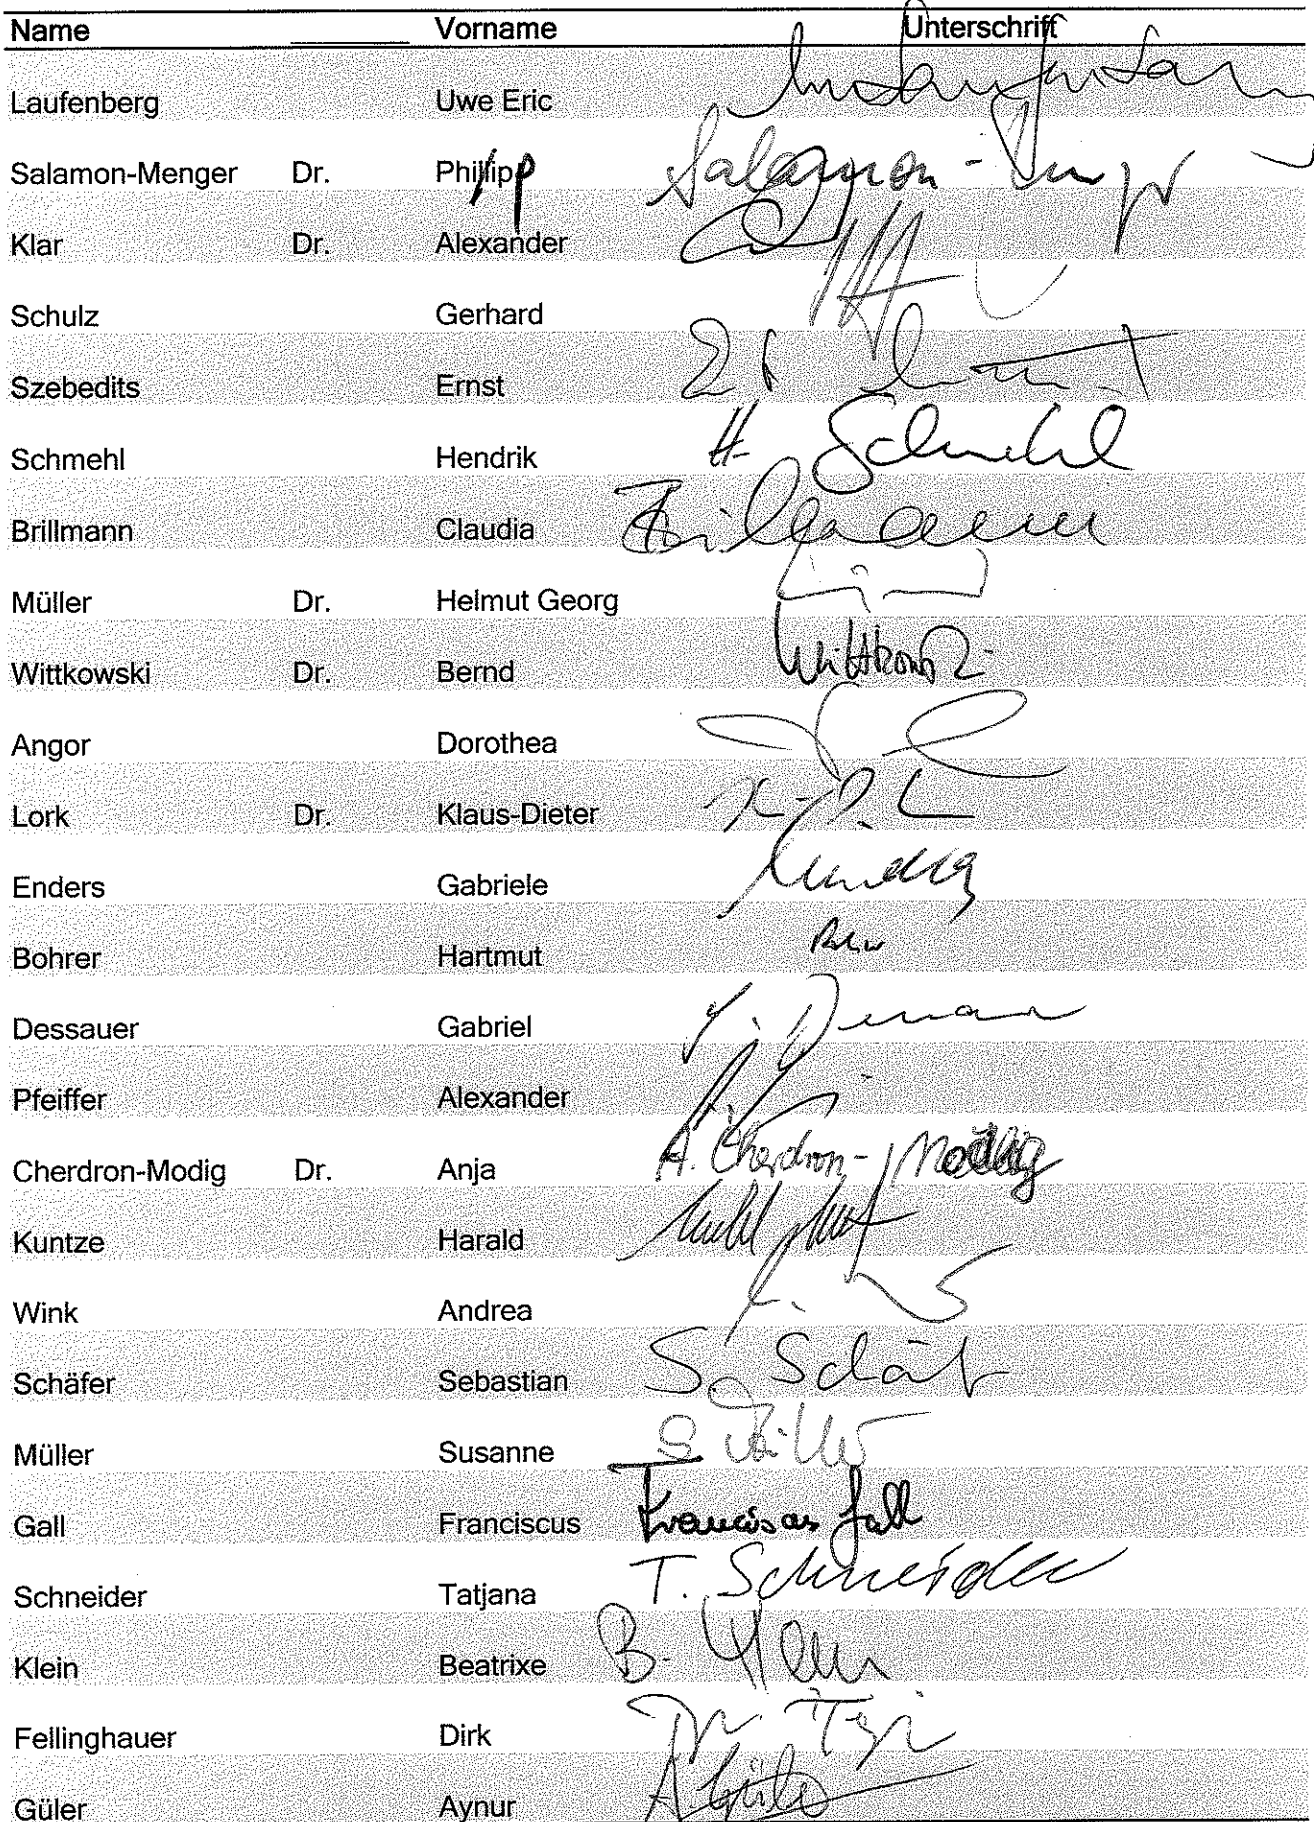 Name Vorname Unterschrift
Laufenberg Uwe Eric
Salamon-Menger Dr. Philipp Salamon-Menger
Klar Dr. Alexander
Schulz Gerhard
Szebedits Ernst
Schmehl Hendrik H. Schmehl
Brillmann Claudia Brillmann
Müller Dr. Helmut Georg
Wittkowski Dr. Bernd Wittkowski
Angor Dorothea
Lork Dr. Klaus-Dieter K.-D. L
Enders Gabriele
Bohrer Hartmut
Dessauer Gabriel
Pfeiffer Alexander
Cherdron-Modig Dr. Anja A. Cherdron-Modig
Kuntze Harald
Wink Andrea
Schäfer Sebastian S. Schäf
Müller Susanne S. Müller
Gall Franciscus Franciscus Gall
Schneider Tatjana T. Schneider
Klein Beatrixe B. Klein
Fellinghauer Dirk
Güler Aynur A Güler